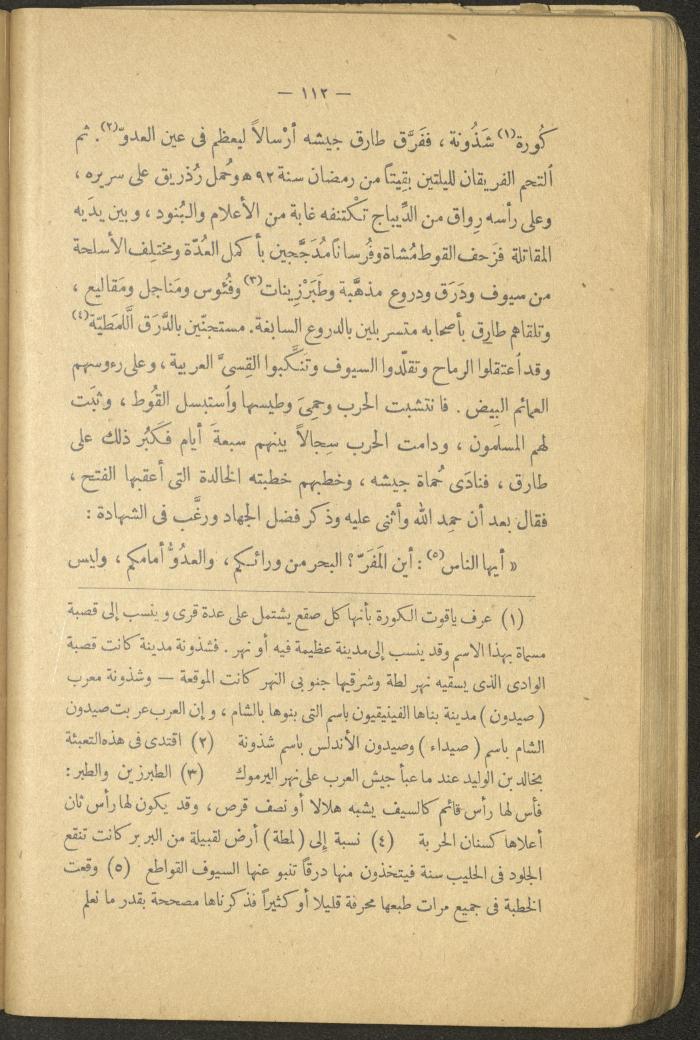 — ١١٢ —
كُورة(١) شَذُونة ، ففَرَّق طارق جيشه أرْسالاً ليعظم فى عين العدوّ(٢). ثم
اُلتحم الفريقان لليلتين بقِيتاً من رمضان سنة ٩٢ ه وحُمل رُذريق على سريره ،
وعلى رأسه رِواق من الدِّيباج تكْتنفه غابة من الأعلام والبُنود ، وبين يدَيه
المقاتلة فَزَحف القوط مُشاة وفُرساناً مُدَجَّجين بأكمل العُدّة ومختلِف الأسلحة
من سيوف ودَرَق ودروع مذهَّبة وطَبَرْزِينات(٣) وفُئوس ومَناجل ومَقاليع ،
وتلقاهم طارِق بأصحابه متسربلين بالدروع السابغة. مستجنّين بالدَّرَق اَلَّلمَطيّة(٤)
وقد اُعتقلوا الرماح وتقلّدوا السيوف وتنَكَّبوا القِسىَّ العربية ، وعلى رءوسهم
العمائم البِيض . فانتشبت الحرب وحمِىَ وطيسها واُستبسل القُوط ، وثبَت
لهم المسلمون ، ودامت الحرب سِجالاً بينهم سبعةَ أيام فكَبُر ذلك على
طارق ، فنادَى حُماة جيشه ، وخطبهم خطبته الخالدة التى أعقبها الفتح ،
فقال بعد أن حمِد الله وأثنى عليه وذكر فضل الجهاد ورغَّب فى الشهادة :
« أيها الناس(٥) : أين المَفَرّ؟ البحر من ورائكم ، والعدُوُّ أمامكم ، وليس
(١) عرف ياقوت الكورة بأنها كل صقع يشتمل على عدة قرى وينسب إلى قصبة
مسماة بهذا الاسم وقد ينسب إلى مدينة عظيمة فيه أو نهر . فشذونة مدينة كانت قصبة
الوادى الذى يسقيه نهر لطة وشرقيها جنوبى النهر كانت الموقعة — وشذونة معرب
( صيدون ) مدينة بناها الفينيقيون باسم التى بنوها بالشام ، وإن العرب عربت صيدون
الشام باسم ( صيداء ) وصيدون الأندلس باسم شذونة (٢) اقتدى فى هذه التعبئة
بخالد بن الوليد عند ما عبأ جيش العرب على نهر اليرموك (٣) الطبرزين والطبر :
فأس لها رأس قائم كالسيف يشبه هلالا أو نصف قرص ، وقد يكون لها رأس ثان
أعلاها كسنان الحربة (٤) نسبة إلى ( لمطة ) أرض لقبيلة من البربر كانت تنقع
الجلود فى الحليب سنة فيتخذون منها درقاً تنبو عنها السيوف القواطع (٥) وقعت
الخطبة فى جميع مرات طبعها محرفة قليلا أو كثيراً فذكرناها مصححة بقدر ما نعلم